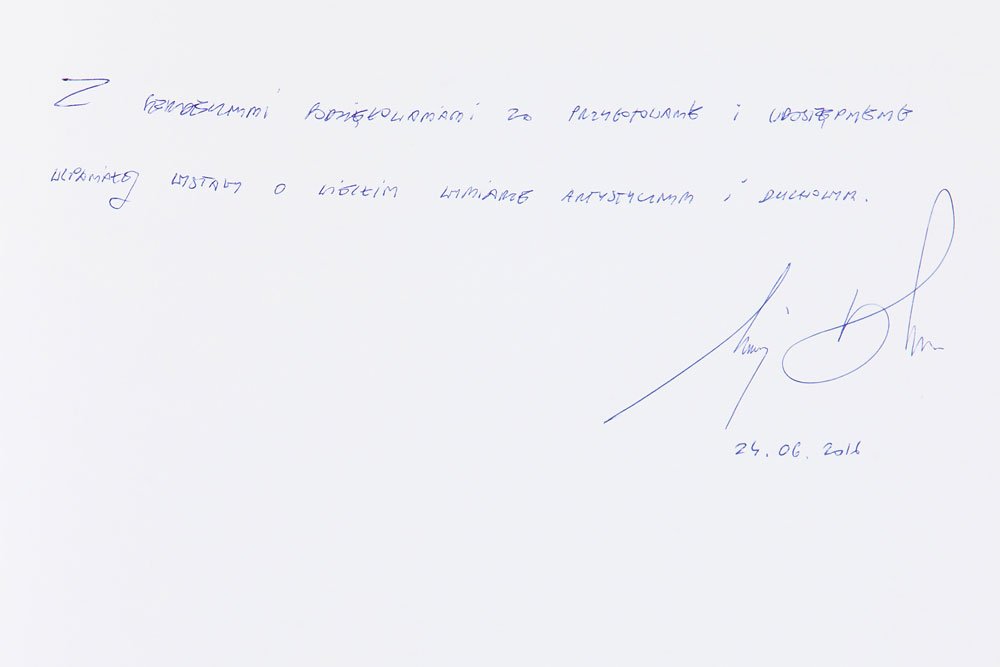 Z serdecznymi podziękowaniami za przygotowanie i udostępnienie
wspaniałej wystawy o wielkim wymiarze artystycznym i duchowym.
24.06.2016